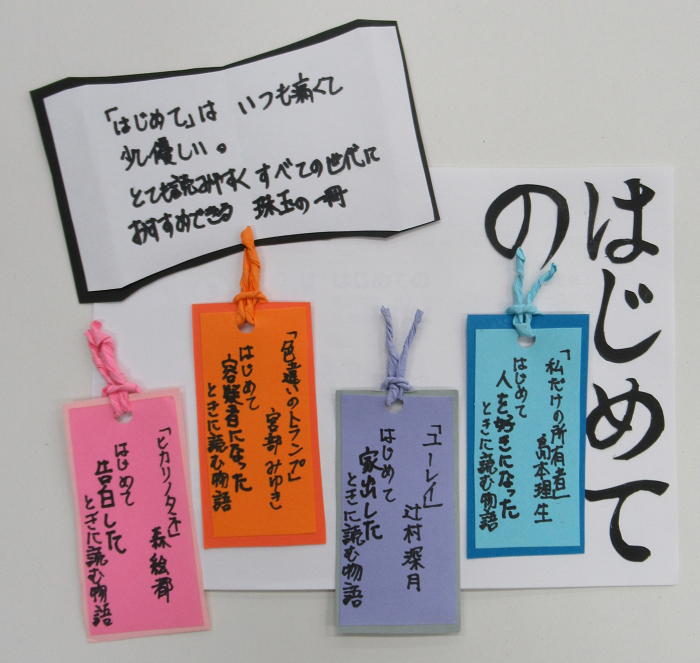 「はじめて」は いつも痛くて
少し優しい。
とても読みやすく すべての世代に
おすすめできる 珠玉の一冊
はじめて
の
「私だけの所有者」
島本理生
はじめて
人を好きになった
ときに読む物語
「ユーレイ」
辻村深月
はじめて
家出した
ときに読む物語
「色違いのトランプ」
宮部みゆき
はじめて
容疑者になった
ときに読む物語
「ヒカリノタネ」
森絵都
はじめて
告白した
ときに読む物語